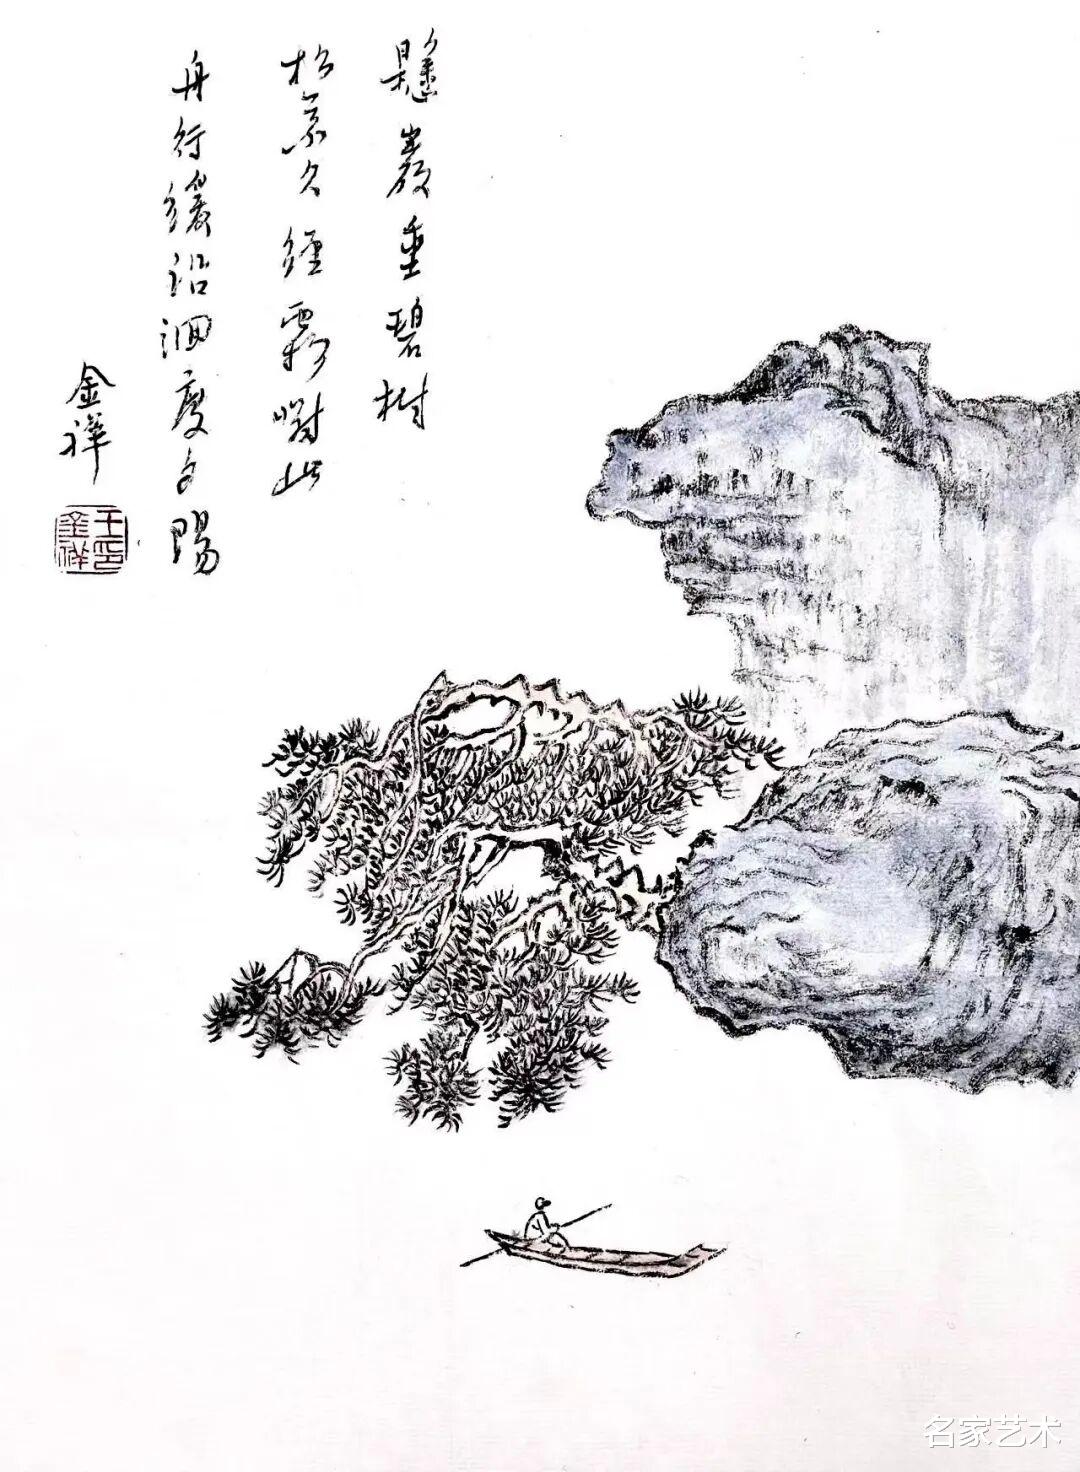 懸巖垂碧樹
松久經
舟行緩沿洄度夕陽
金祥
王印金祥
名家艺术